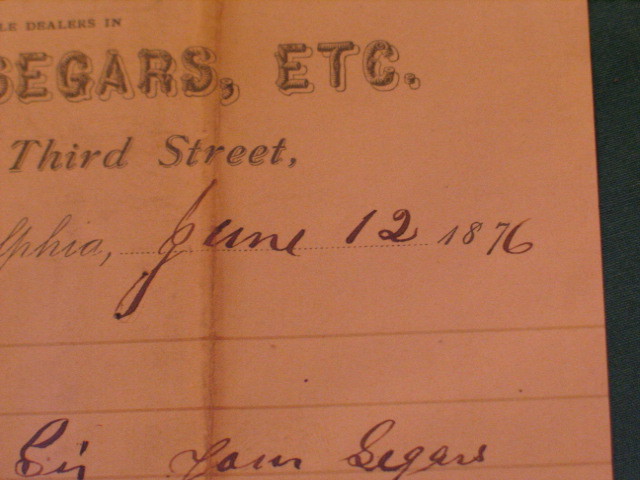 LE DEALERS IN
SEGARS, ETC.
Third Street,
lphia, June 12 1876
Sir your Segars